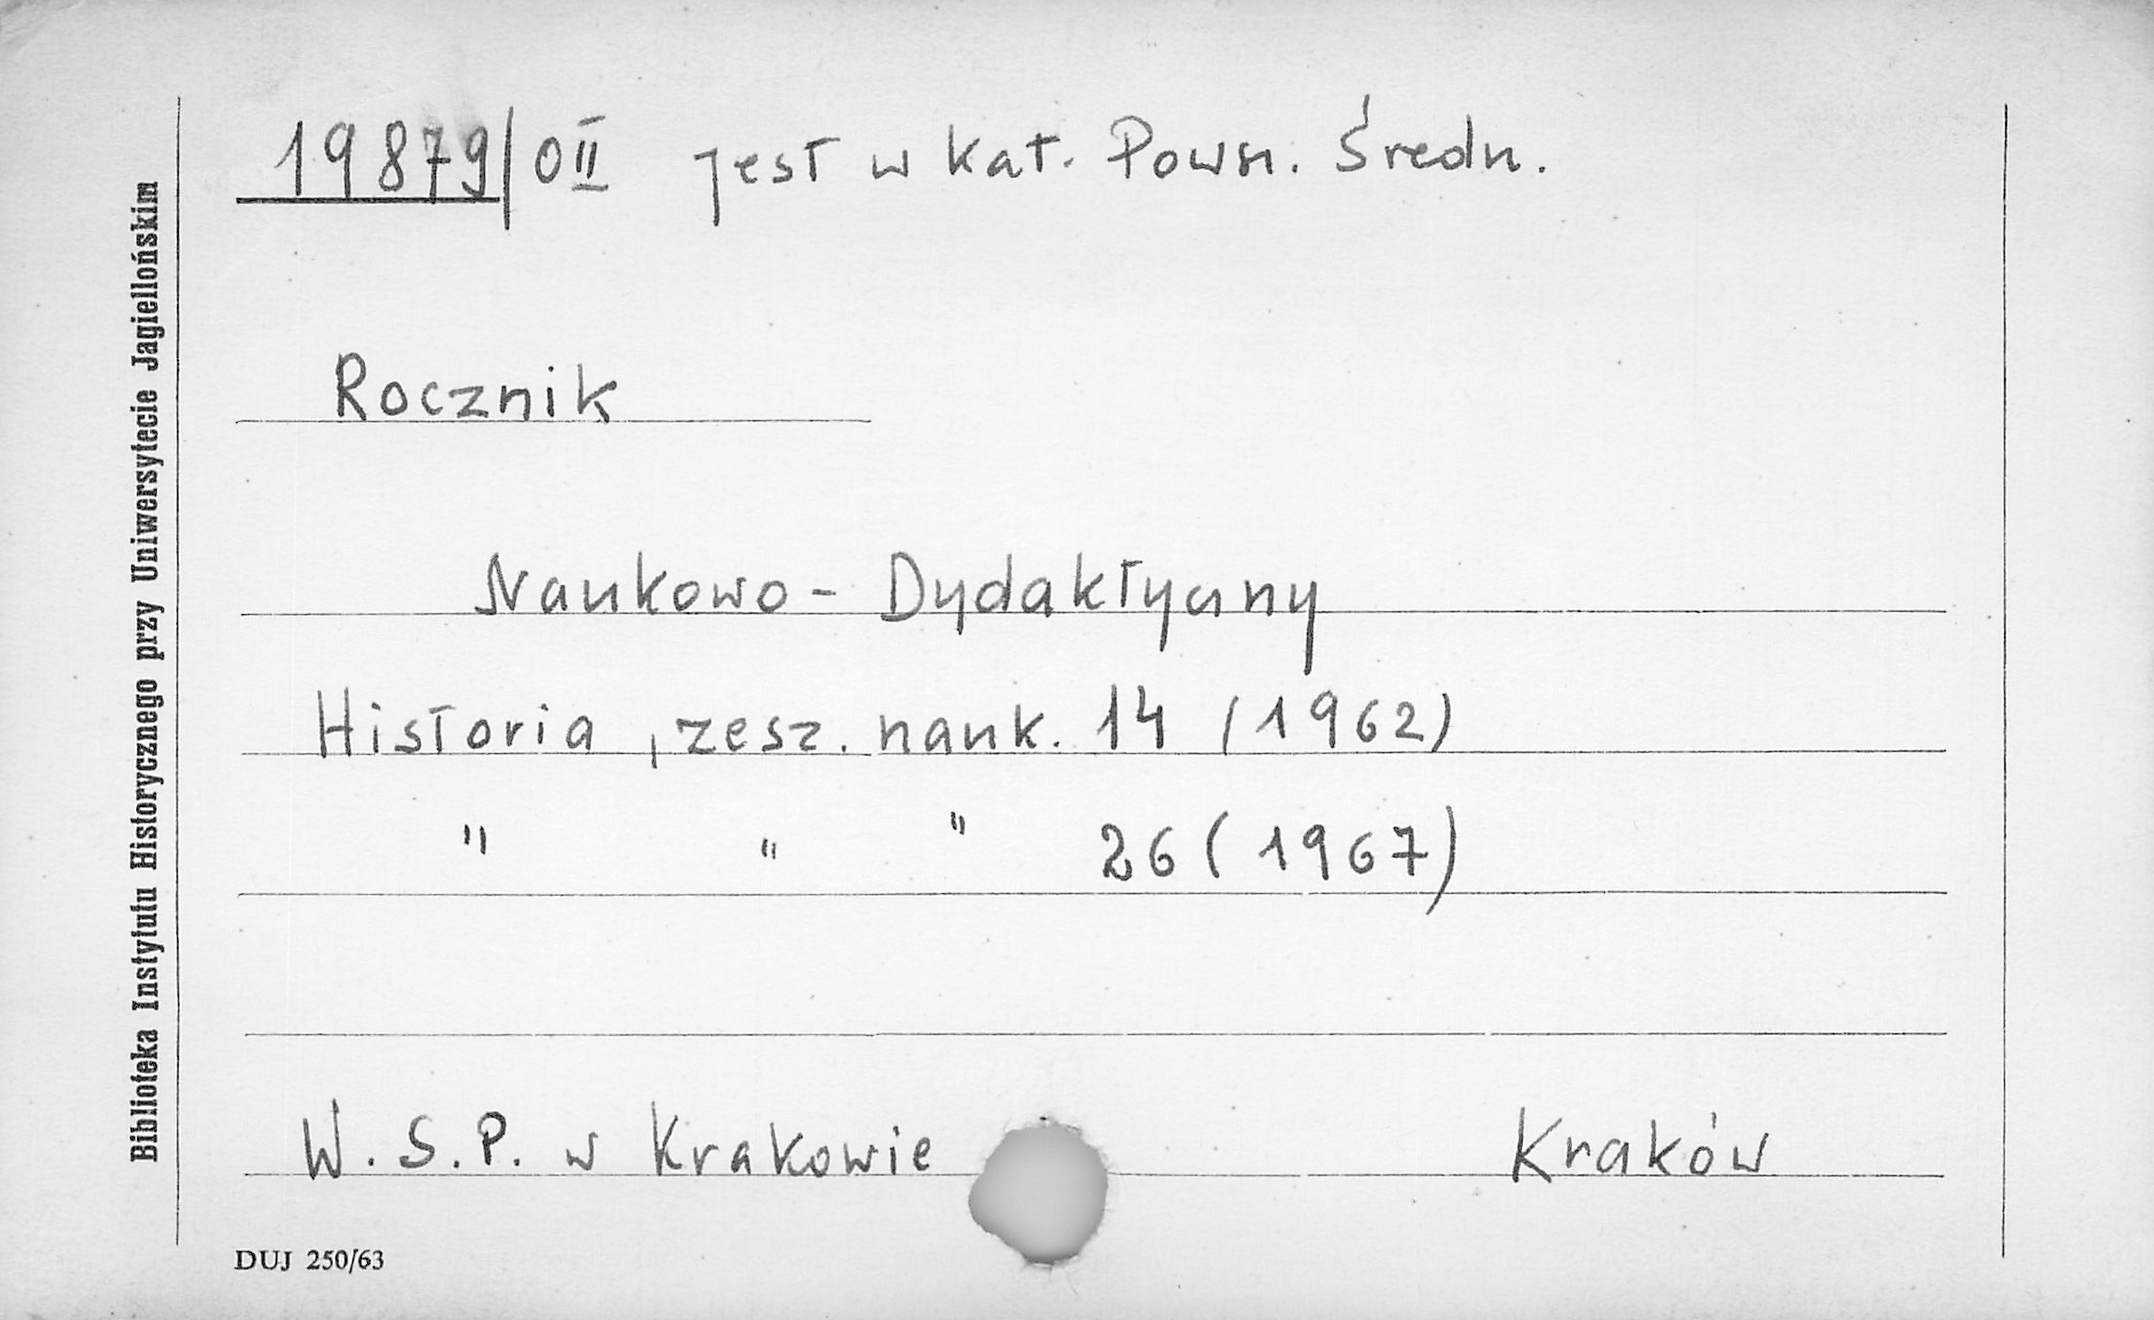 19879/0II jest w kat. Powsz. Średn.
Rocznik
Naukowo - Dydaktyczny
Historia, zesz. nauk. 14 (1962)
" " " 26 (1967)
W. S. P. w Krakowie Kraków
DUJ 250/63
Biblioteka Instytutu Historycznego przy Uniwersytecie Jagiellońskim